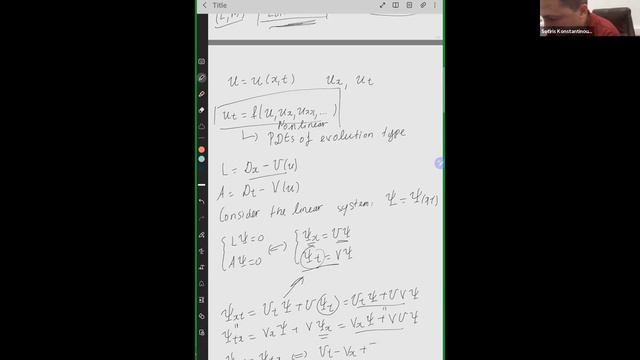 Title
Sotiris Konstantinou...
u = u(x,t) u_x, u_t
u_t = f(u, u_x, u_xx, ...)
Nonlinear
↳ PDEs of evolution type
L = D_x - U(u)
A = D_t - V(u)
Consider the linear system: Ψ = Ψ(x,t)
{ LΨ=0 ⟺ { Ψ_x = UΨ
{ AΨ=0 { Ψ_t = VΨ
Ψ_xt = U_t Ψ + U Ψ_t = U_t Ψ + U V Ψ
Ψ_tx = V_x Ψ + V Ψ_x = V_x Ψ + V U Ψ
Ψ_tx ⟺ U_t - V_x + -